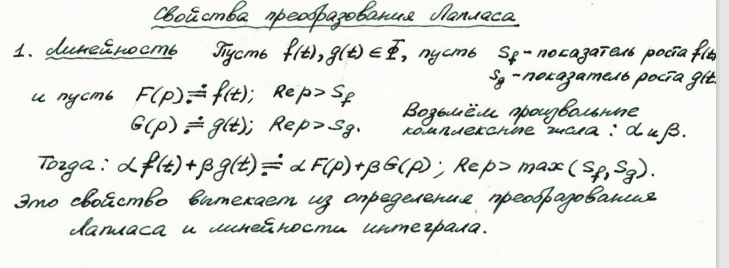 Свойства преобразования Лапласа
1. Линейность Пусть f(t), g(t) ∈ Φ, пусть S_f - показатель роста f(t)
S_g - показатель роста g(t
и пусть F(p) ≓ f(t); Re p > S_f
G(p) ≓ g(t); Re p > S_g. Возьмём произвольные
комплексные числа: α и β.
Тогда: αf(t)+βg(t) ≓ αF(p)+βG(p); Re p > max(S_f, S_g).
Это свойство вытекает из определения преобразования
Лапласа и линейности интеграла.